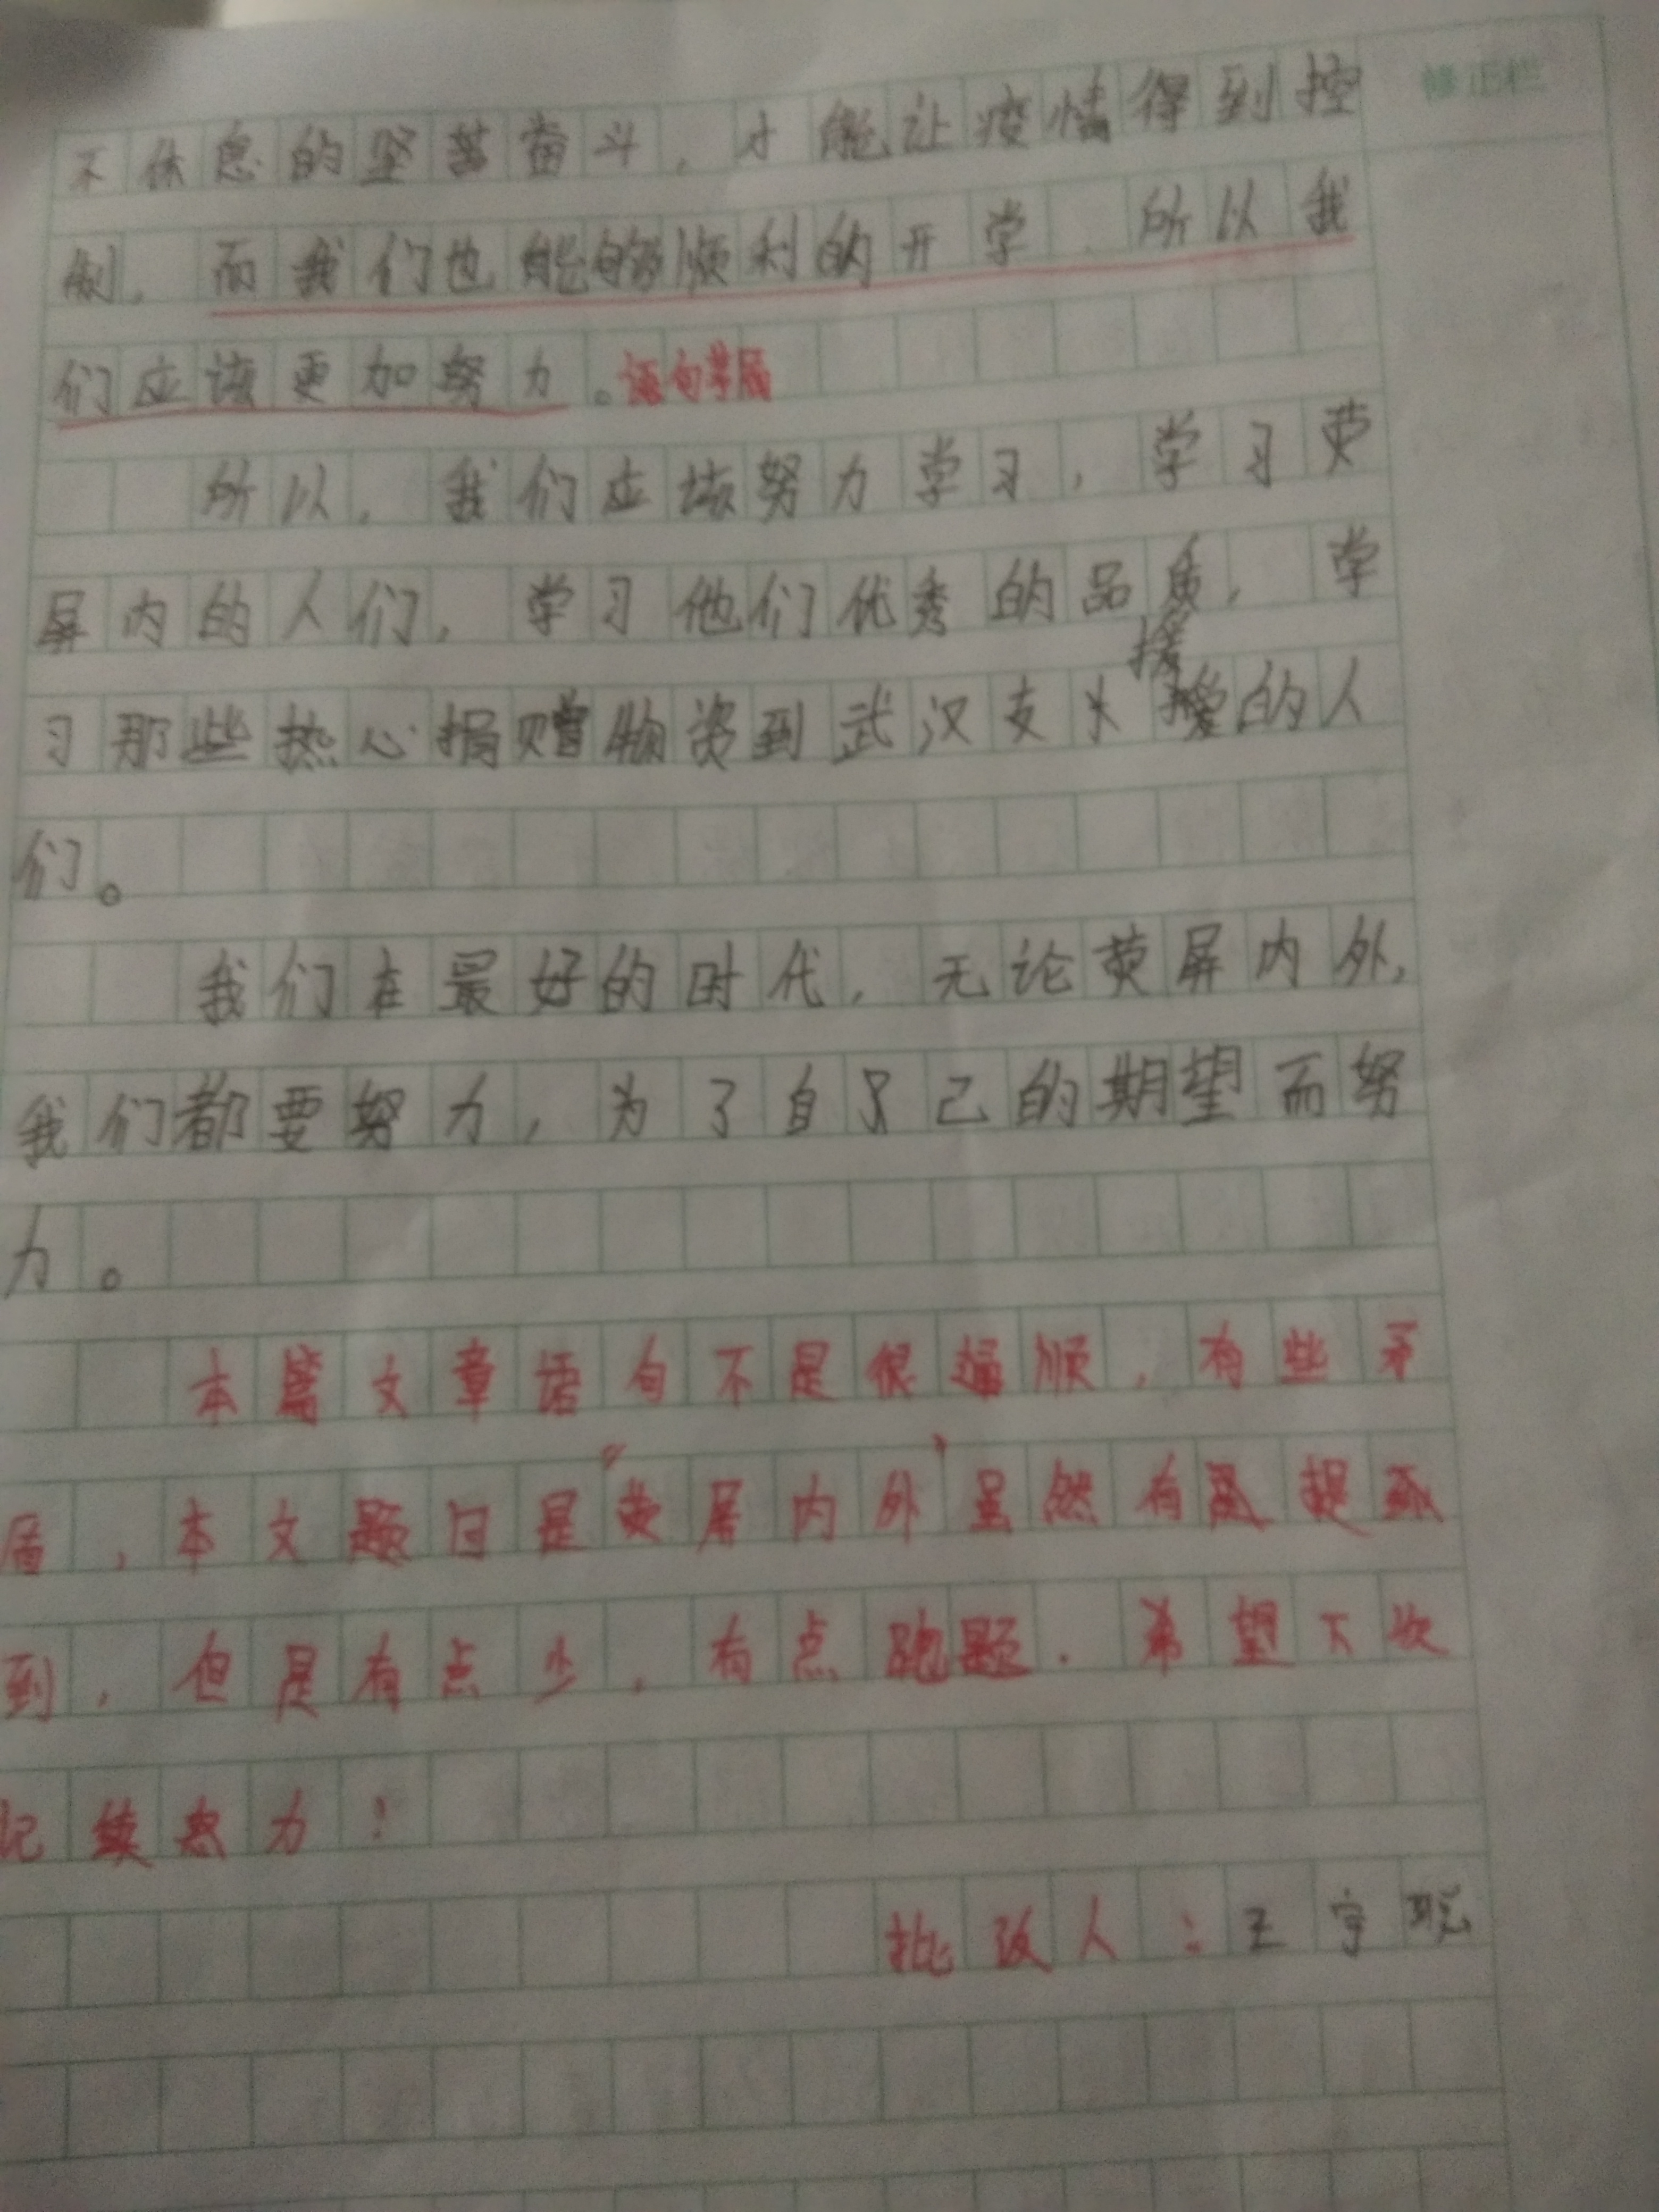 修正栏
不休息的坚苦奋斗,才能让疫情得到控
制,而我们也能够顺利的开学、所以我
们应该更加努力。语句矛盾
所以,我们应该努力学习,学习荧
屏内的人们,学习他们优秀的品质,学
援
习那些热心捐赠物资到武汉支的人
们。
我们在最好的时代,无论荧屏内外,
我们都要努力,为了自己的期望而努
力。
本篇文章语句不是很通顺,有些矛
盾,本文题目是“荧屏内外”虽然有提
到,但是有点少,有点跑题.希望下次
续努力!
批改人:王宇